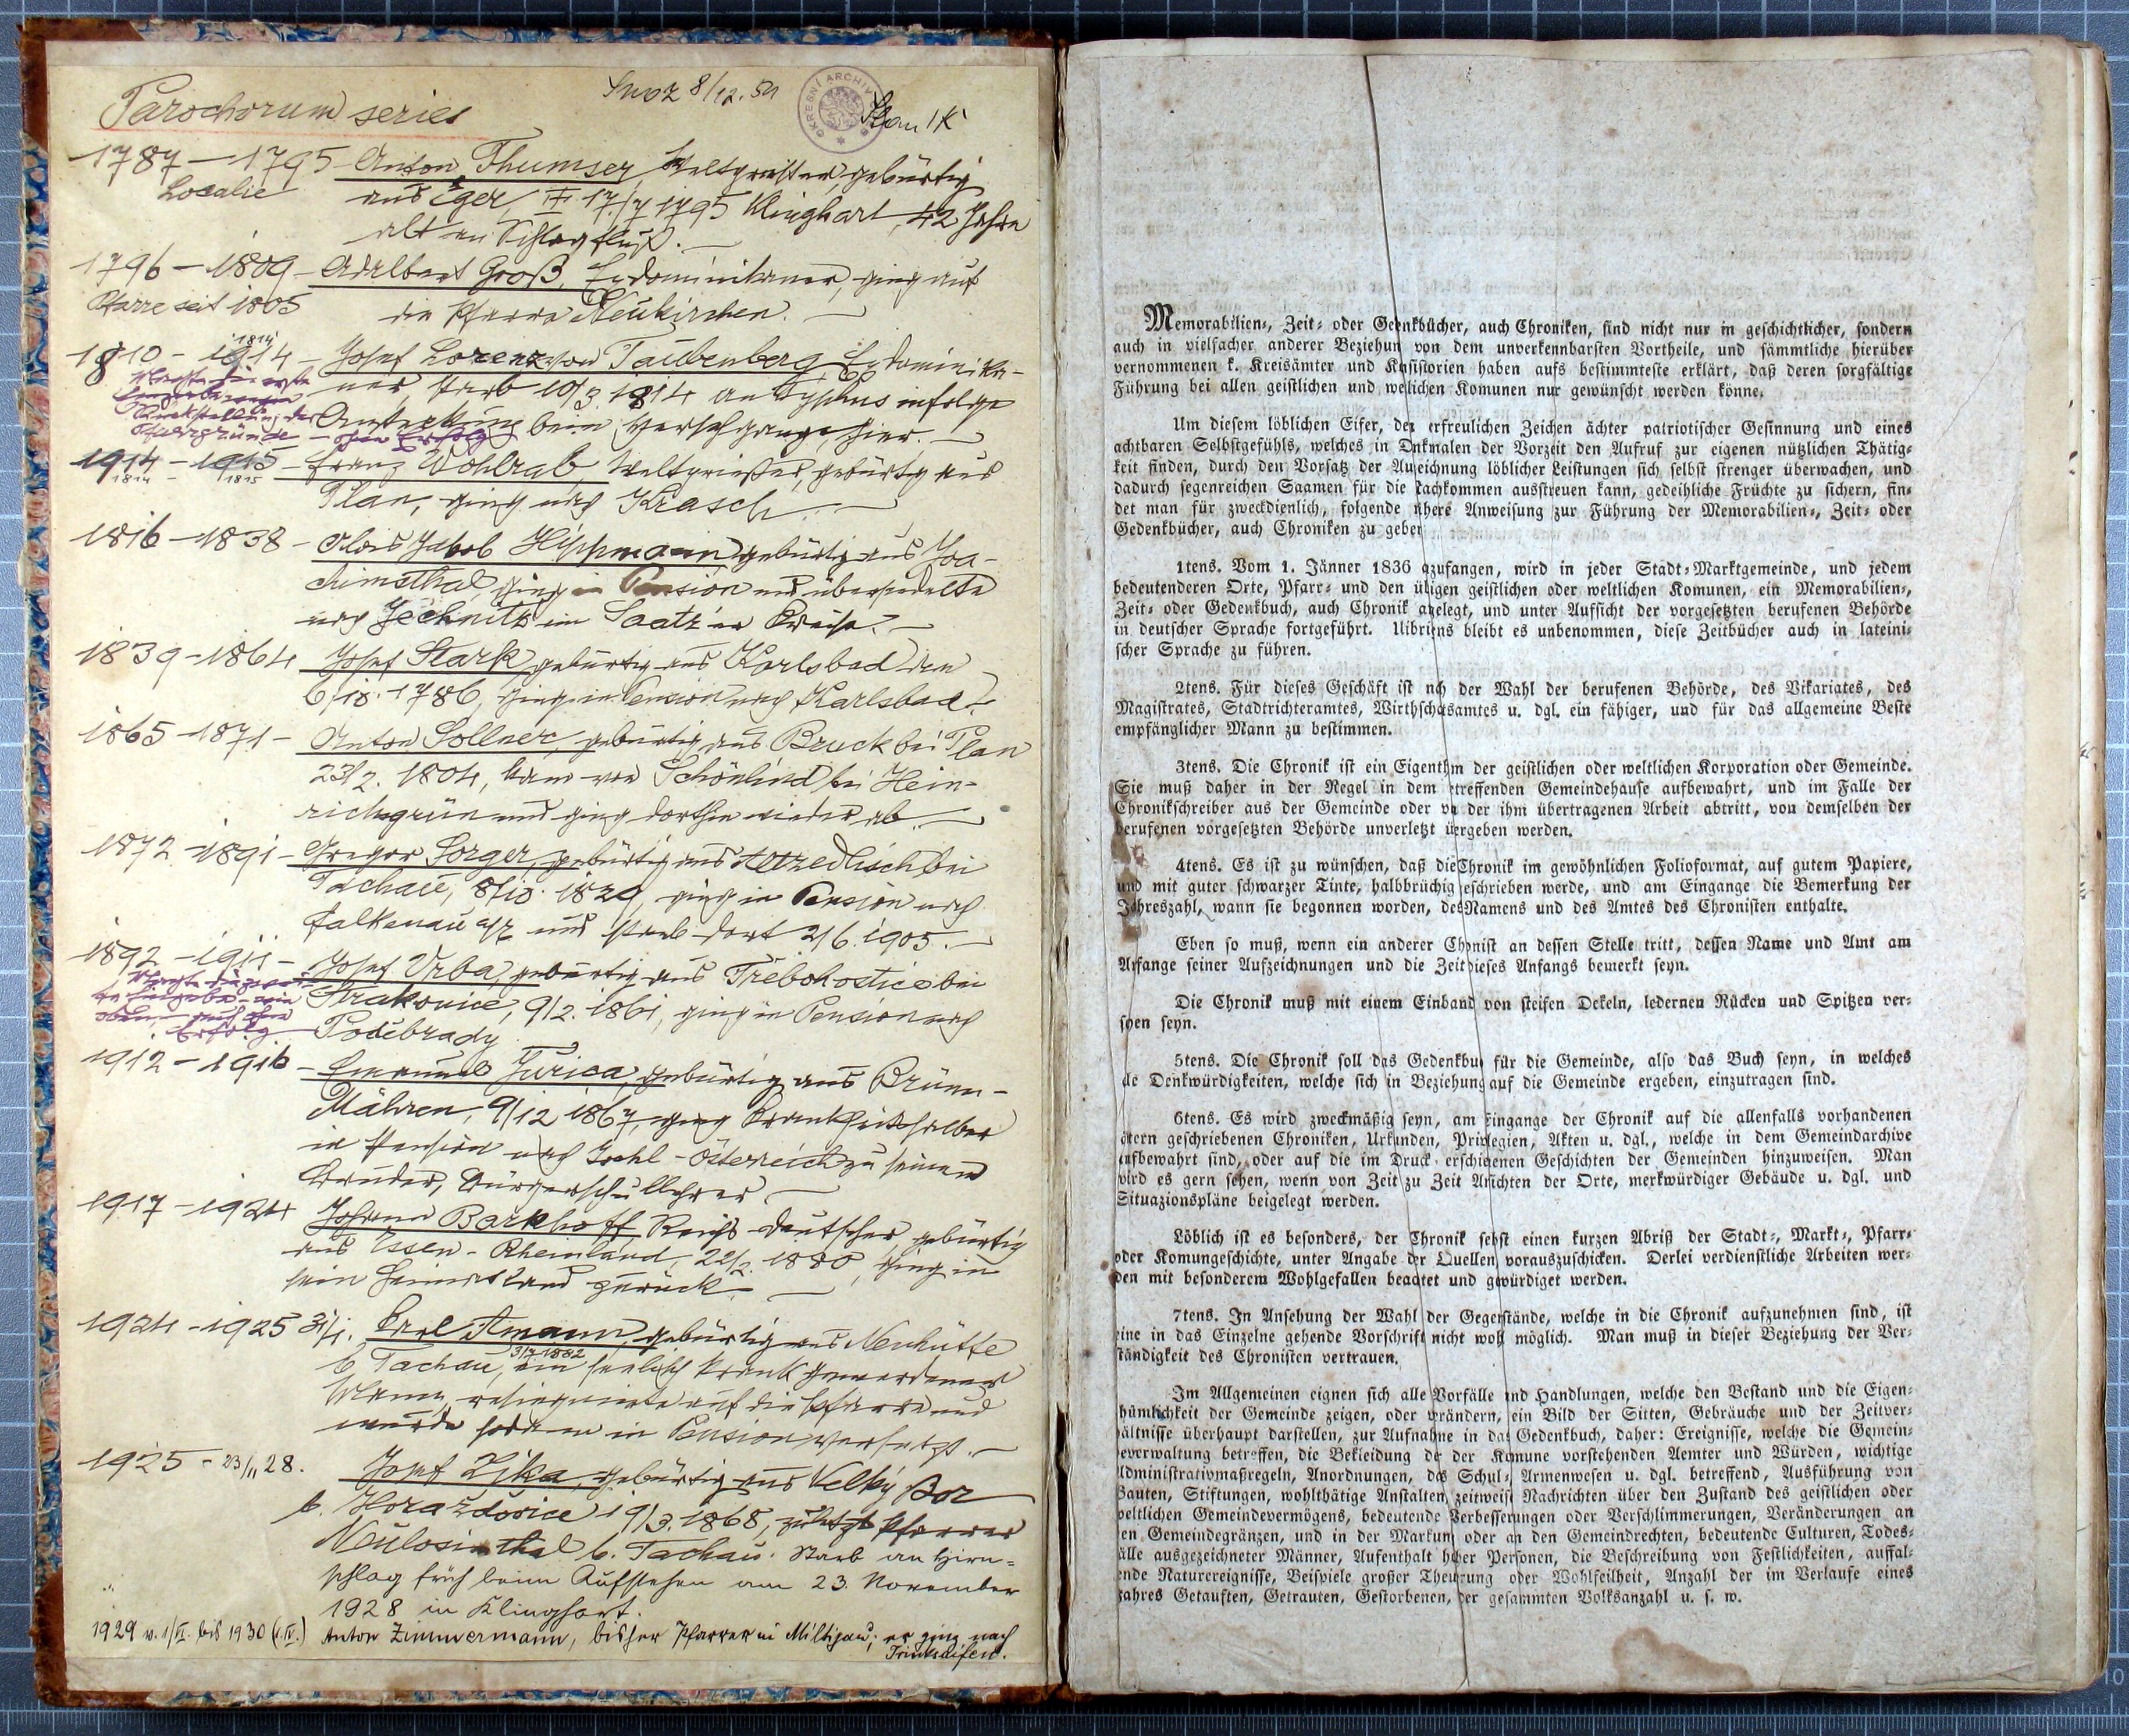 Parochorum series
8/12.
OKRESNÍ ARCHIV
1787 – 1795 Anton Thumser, Weltpriester, gebürtig
Localie
aus Eger, 17./7 1795 Klinghart, 42 Jahre
alt an Schlagfluß. –
1796 – 1809 – Adalbert Groß, Exdominikaner, ging auf
Pfarre seit 1805
die Pfarre Neukirchen. –
1814
1810 – 1914 – Josef Lorenz von Taubenberg Exdominika-
ner, starb 10/3. 1814 an Typhus infolge
Ansteckung beim Versehgange hier. –
Pfarrgründe – ohne Erfolg
1914 – 1915 – Franz Wohlrab, Weltpriester, gebürtig aus
1814 – 1815
Plan, ging nach Krasch. –
1816 – 1838 – Alois Jakob Hippmann gebürtig aus Joa-
chimsthal, ging in Pension und übersiedelte
nach Jechnitz im Saatz'er Kreise. –
1839 – 1864 Josef Stark gebürtig aus Karlsbad den
1786, ging in Pension nach Karlsbad.
1865 – 1871 – Anton Sollner, gebürtig aus Bruck bei Plan
23/2. 1804, kam von Schönlind bei Hein-
richsgrün und ging dorthin wieder ab. –
1872 – 1891 – Gregor Sorger, gebürtig aus bei
Tachau, 8/10. 1829, ging in Pension nach
Falkenau a/E und starb dort 2/6. 1905. –
1892 – 1911 – Josef Vrba, gebürtig aus Třebohostice bei
Strakonice, 9/2. 1861, ging in Pension nach
Erfolg.
Poděbrady
1912 – 1916 – Emanuel Juřica, gebürtig aus Brünn –
Mähren, 9/12 1867, ging krankheitshalber
in Pension nach Ischl – Österreich zu seinem
Bruder, Bürgerschullehrer –
1917 – 1924 Johann Barkhoff Reichsdeutscher gebürtig
aus Essen – Rheinland, 22/2. 1880, ging in
sein Heimatland zurück. –
1924 – 1925 31/1. Karl Amann, gebürtig aus Neuhütte
3/7 1882
b. Tachau, ein seelisch krank gewordener
Mann, resignierte auf die Pfarre und
wurde sodann in Pension versetzt. –
1925 – 23/11 28. Josef Zjka, gebürtig aus Velký Bor
b. Horažďovice 19/3. 1868, zuletzt Pfarrer
Neulosimthal b. Tachau. Starb an Hirn-
schlag früh beim Aufstehen am 23. November
1928 in Klinghart.
1929 v. 1/VI. bis 1930 Anton Zimmermann, bisher Pfarrer in Miltigau; er ging nach
Trinkseifen.
Memorabilien-, Zeit- oder Gedenkbücher, auch Chroniken, sind nicht nur in geschichtlicher, sondern
auch in vielfacher anderer Beziehung von dem unverkennbarsten Vortheile, und sämmtliche hierüber
vernommenen k. Kreisämter und Konsistorien haben aufs bestimmteste erklärt, daß deren sorgfältige
Führung bei allen geistlichen und weltlichen Komunen nur gewünscht werden könne.
Um diesem löblichen Eifer, der erfreulichen Zeichen ächter patriotischer Gesinnung und eines
achtbaren Selbstgefühls, welches in Denkmalen der Vorzeit den Aufruf zur eigenen nützlichen Thätig-
keit finden, durch den Vorsatz der Aufzeichnung löblicher Leistungen sich selbst strenger überwachen, und
dadurch segenreichen Saamen für die Nachkommen ausstreuen kann, gedeihliche Früchte zu sichern, fin-
det man für zweckdienlich, folgende nähere Anweisung zur Führung der Memorabilien-, Zeit- oder
Gedenkbücher, auch Chroniken zu geben
1tens. Vom 1. Jänner 1836 anzufangen, wird in jeder Stadt-Marktgemeinde, und jedem
bedeutenderen Orte, Pfarr- und den übrigen geistlichen oder weltlichen Komunen, ein Memorabilien-,
Zeit- oder Gedenkbuch, auch Chronik angelegt, und unter Aufsicht der vorgesetzten berufenen Behörde
in deutscher Sprache fortgeführt. Uibrigens bleibt es unbenommen, diese Zeitbücher auch in lateini-
scher Sprache zu führen.
2tens. Für dieses Geschäft ist nach der Wahl der berufenen Behörde, des Vikariates, des
Magistrates, Stadtrichteramtes, Wirthschaftsamtes u. dgl. ein fähiger, und für das allgemeine Beste
empfänglicher Mann zu bestimmen.
3tens. Die Chronik ist ein Eigenthum der geistlichen oder weltlichen Korporation oder Gemeinde.
Sie muß daher in der Regel in dem betreffenden Gemeindehause aufbewahrt, und im Falle der
Chronikschreiber aus der Gemeinde oder von der ihm übertragenen Arbeit abtritt, von demselben der
berufenen vorgesetzten Behörde unverletzt übergeben werden.
4tens. Es ist zu wünschen, daß die Chronik im gewöhnlichen Folioformat, auf gutem Papiere,
und mit guter schwarzer Tinte, halbbrüchig geschrieben werde, und am Eingange die Bemerkung der
Jahreszahl, wann sie begonnen worden, des Namens und des Amtes des Chronisten enthalte.
Eben so muß, wenn ein anderer Chronist an dessen Stelle tritt, dessen Name und Amt am
Anfange seiner Aufzeichnungen und die Zeit dieses Anfangs bemerkt seyn.
Die Chronik muß mit einem Einband von steifen Dekeln, ledernen Rücken und Spitzen ver-
sehen seyn.
5tens. Die Chronik soll das Gedenkbuch für die Gemeinde, also das Buch seyn, in welches
alle Denkwürdigkeiten, welche sich in Beziehung auf die Gemeinde ergeben, einzutragen sind.
6tens. Es wird zweckmäßig seyn, am Eingange der Chronik auf die allenfalls vorhandenen
ältern geschriebenen Chroniken, Urkunden, Privilegien, Akten u. dgl., welche in dem Gemeindarchive
aufbewahrt sind, oder auf die im Druck erschienenen Geschichten der Gemeinden hinzuweisen. Man
wird es gern sehen, wenn von Zeit zu Zeit Ansichten der Orte, merkwürdiger Gebäude u. dgl. und
Situazionspläne beigelegt werden.
Löblich ist es besonders, der Chronik selbst einen kurzen Abriß der Stadt-, Markt-, Pfarr-
oder Komungeschichte, unter Angabe der Quellen vorauszuschicken. Derlei verdienstliche Arbeiten wer-
den mit besonderem Wohlgefallen beachtet und gewürdiget werden.
7tens. In Ansehung der Wahl der Gegenstände, welche in die Chronik aufzunehmen sind, ist
eine in das Einzelne gehende Vorschrift nicht wohl möglich. Man muß in dieser Beziehung der Ver-
ständigkeit des Chronisten vertrauen.
Im Allgemeinen eignen sich alle Vorfälle und Handlungen, welche den Bestand und die Eigen-
thümlichkeit der Gemeinde zeigen, oder verändern, ein Bild der Sitten, Gebräuche und der Zeitver-
hältnisse überhaupt darstellen, zur Aufnahme in das Gedenkbuch, daher: Ereignisse, welche die Gemein-
deverwaltung betreffen, die Bekleidung der der Komune vorstehenden Aemter und Würden, wichtige
Administrativmaßregeln, Anordnungen, das Schul-, Armenwesen u. dgl. betreffend, Ausführung von
Bauten, Stiftungen, wohlthätige Anstalten, zeitweise Nachrichten über den Zustand des geistlichen oder
weltlichen Gemeindevermögens, bedeutende Verbesserungen oder Verschlimmerungen, Veränderungen an
den Gemeindegränzen, und in der Markung oder an den Gemeindrechten, bedeutende Culturen, Todes-
fälle ausgezeichneter Männer, Aufenthalt hoher Personen, die Beschreibung von Festlichkeiten, auffal-
lende Naturereignisse, Beispiele großer Theurung oder Wohlfeilheit, Anzahl der im Verlaufe eines
Jahres Getauften, Getrauten, Gestorbenen, der gesammten Volksanzahl u. s. w.